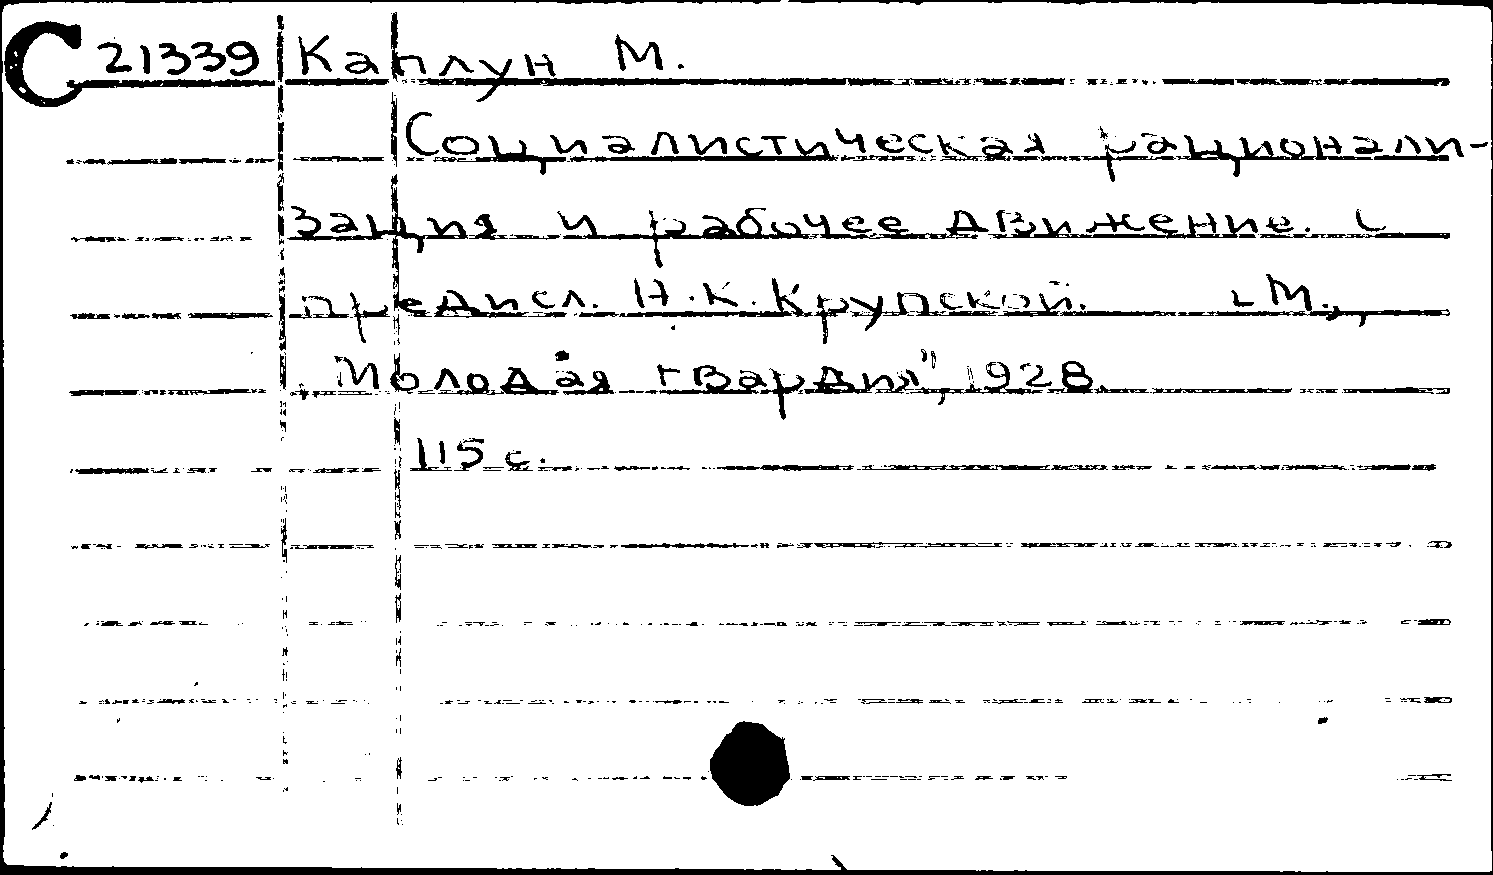 С 21339 Каплун М.
Социалистическая рационали-
зация и рабочее движение. С
предисл. Н.К. Крупской. М.,
„Молодая гвардия", 1928.
115 с.